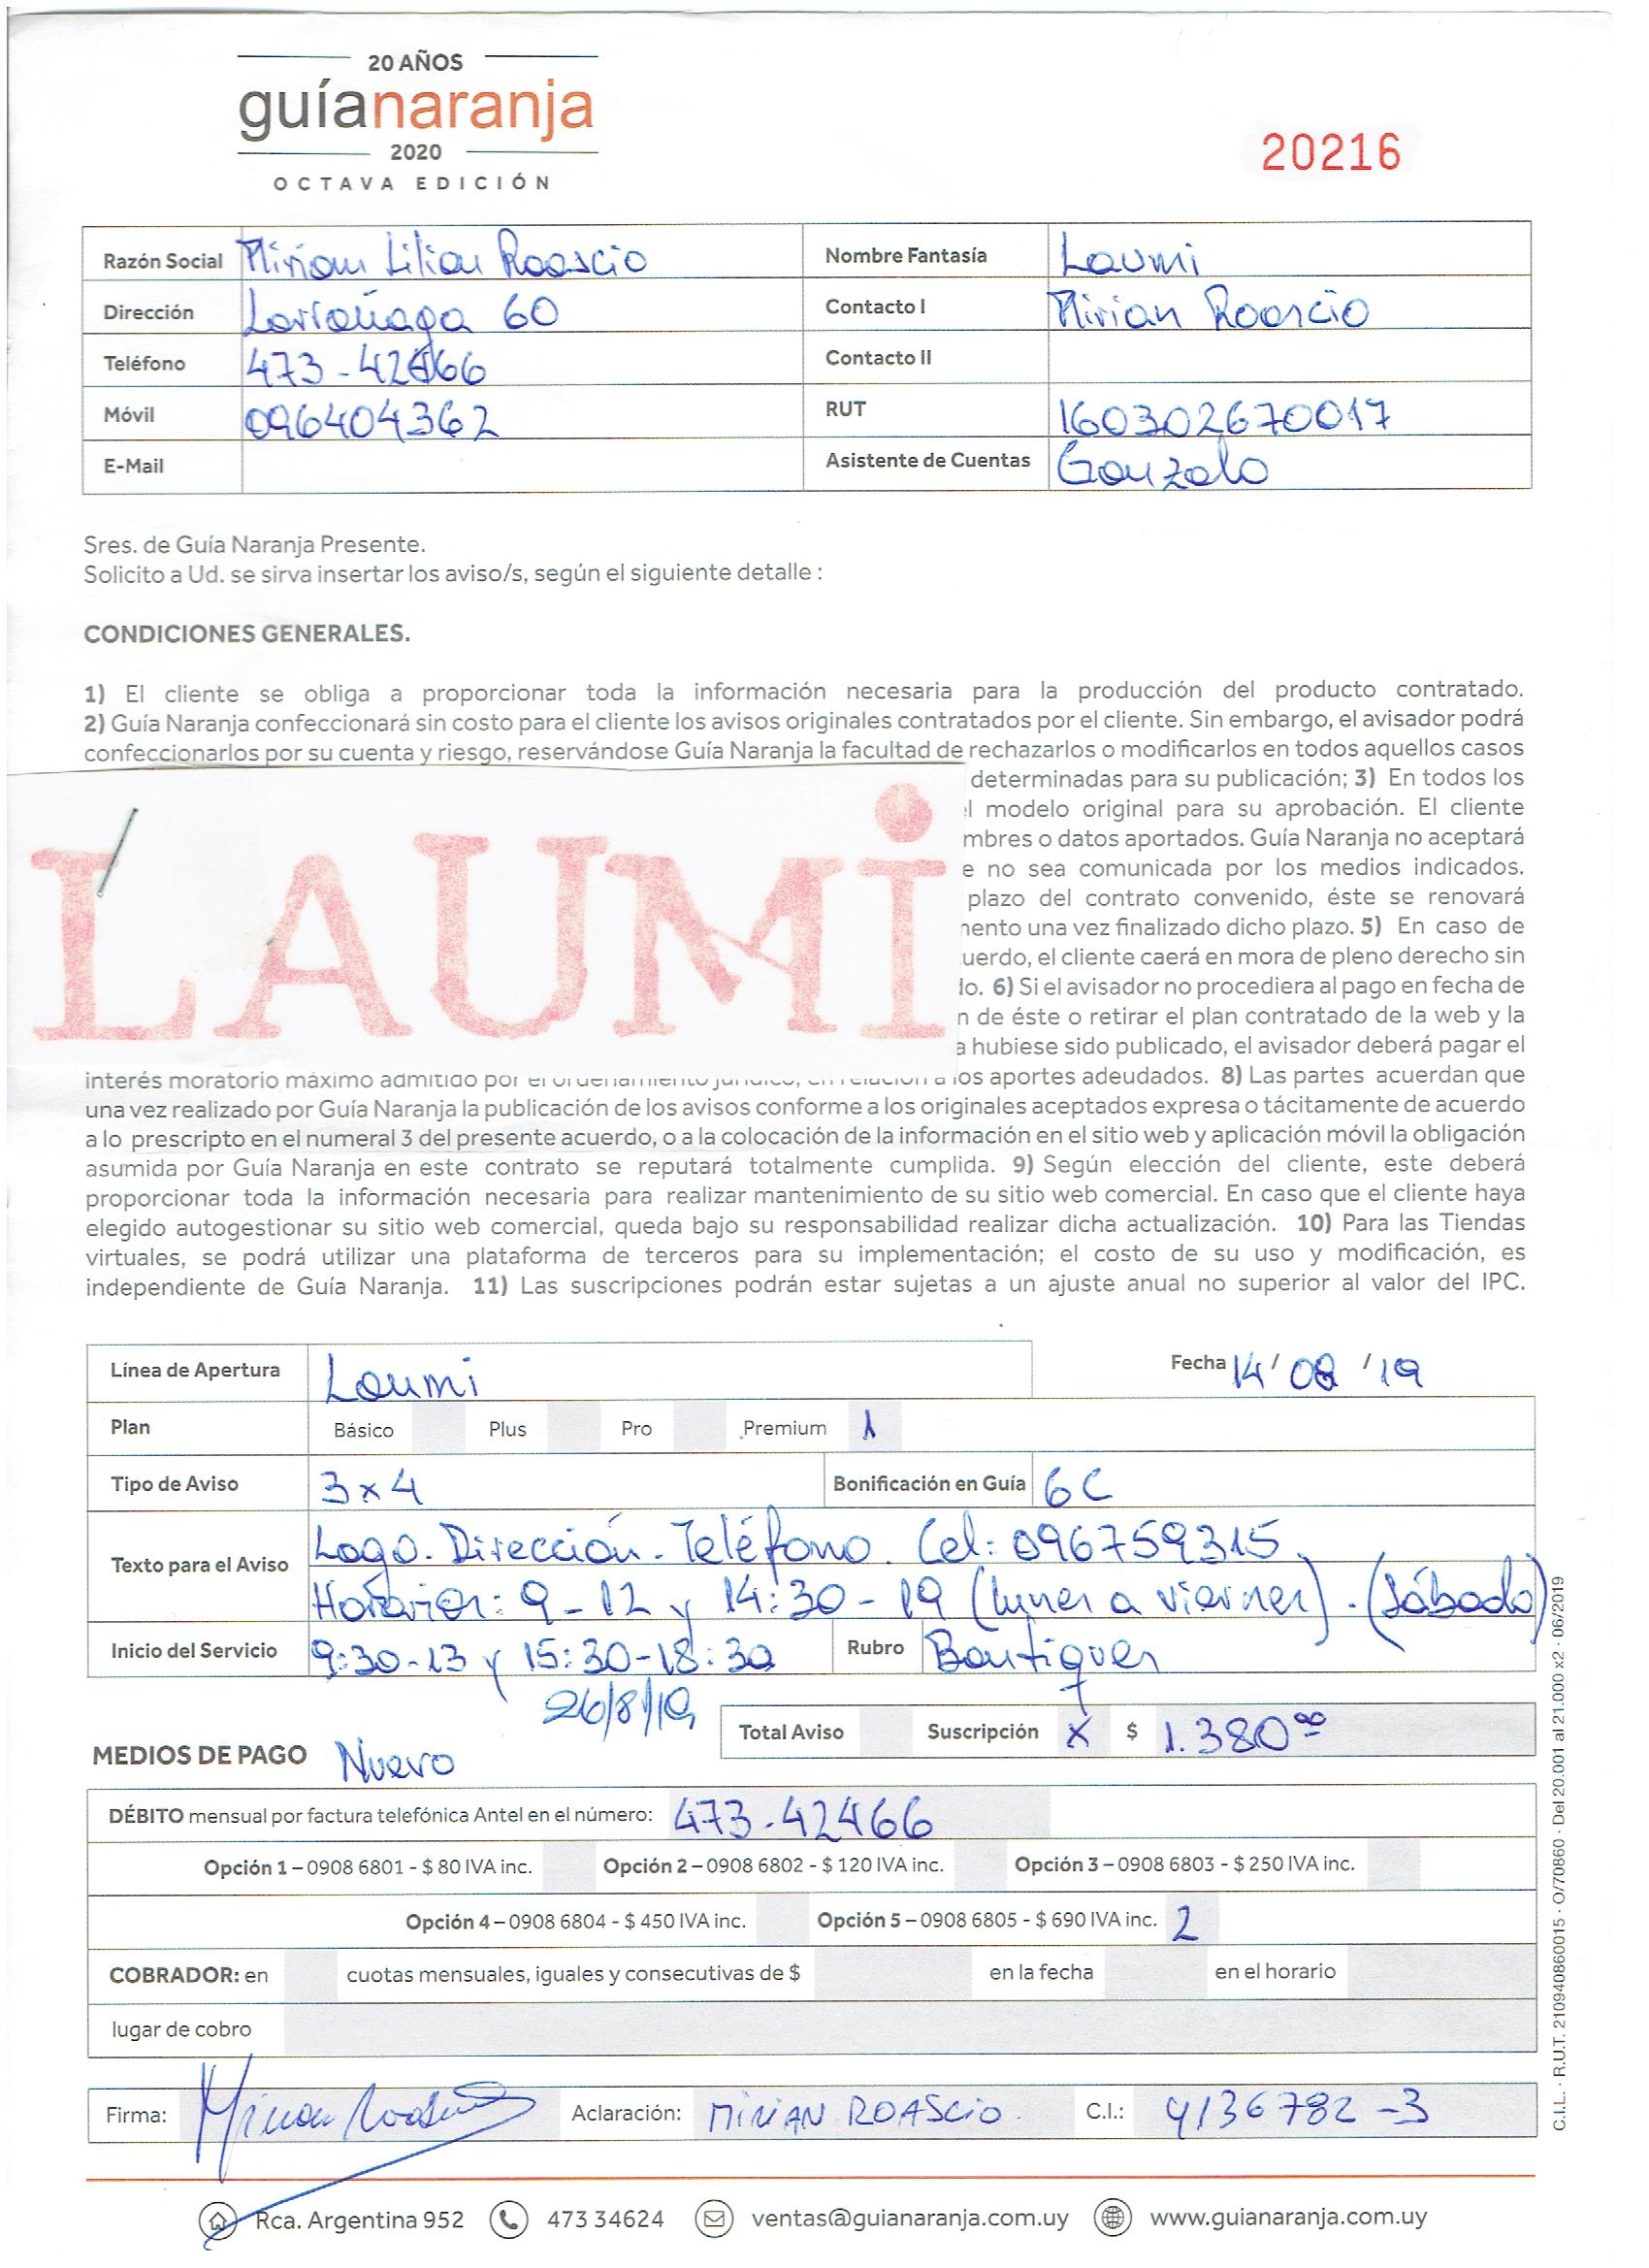 20 AÑOS
guíanaranja
2020
OCTAVA EDICIÓN
20216
Razón Social Mirian Lilian Roascio Nombre Fantasía Laumi
Dirección Larrañaga 60 Contacto I Mirian Roascio
Teléfono 473-42466 Contacto II
Móvil 096404362 RUT 160302670017
E-Mail Asistente de Cuentas Gonzalo
Sres. de Guía Naranja Presente.
Solicito a Ud. se sirva insertar los aviso/s, según el siguiente detalle :
CONDICIONES GENERALES.
1) El cliente se obliga a proporcionar toda la información necesaria para la producción del producto contratado.
2) Guía Naranja confeccionará sin costo para el cliente los avisos originales contratados por el cliente. Sin embargo, el avisador podrá
confeccionarlos por su cuenta y riesgo, reservándose Guía Naranja la facultad de rechazarlos o modificarlos en todos aquellos casos
determinadas para su publicación; 3) En todos los
l modelo original para su aprobación. El cliente
mbres o datos aportados. Guía Naranja no aceptará
e no sea comunicada por los medios indicados.
plazo del contrato convenido, éste se renovará
mento una vez finalizado dicho plazo. 5) En caso de
uerdo, el cliente caerá en mora de pleno derecho sin
do. 6) Si el avisador no procediera al pago en fecha de
n de éste o retirar el plan contratado de la web y la
a hubiese sido publicado, el avisador deberá pagar el
LAUMi
interés moratorio máximo admitido por el ordenamiento jurídico, en relación a los aportes adeudados. 8) Las partes acuerdan que
una vez realizado por Guía Naranja la publicación de los avisos conforme a los originales aceptados expresa o tácitamente de acuerdo
a lo prescripto en el numeral 3 del presente acuerdo, o a la colocación de la información en el sitio web y aplicación móvil la obligación
asumida por Guía Naranja en este contrato se reputará totalmente cumplida. 9) Según elección del cliente, este deberá
proporcionar toda la información necesaria para realizar mantenimiento de su sitio web comercial. En caso que el cliente haya
elegido autogestionar su sitio web comercial, queda bajo su responsabilidad realizar dicha actualización. 10) Para las Tiendas
virtuales, se podrá utilizar una plataforma de terceros para su implementación; el costo de su uso y modificación, es
independiente de Guía Naranja. 11) Las suscripciones podrán estar sujetas a un ajuste anual no superior al valor del IPC.
Línea de Apertura Laumi Fecha 14/ 08 /19
Plan Básico Plus Pro Premium 1
Tipo de Aviso 3x4 Bonificación en Guía 6C
Texto para el Aviso Logo. Dirección. Teléfono. Cel: 096759315
Horarios: 9-12 y 14:30-19 (lunes a viernes). (Sábado)
Inicio del Servicio 9:30-13 y 15:30-18:30 Rubro Boutiques
26/8/19
Total Aviso Suscripción x $ 1.380⁰⁰
MEDIOS DE PAGO Nuevo
DÉBITO mensual por factura telefónica Antel en el número: 473-42466
Opción 1 – 0908 6801 - $ 80 IVA inc. Opción 2 – 0908 6802 - $ 120 IVA inc. Opción 3 – 0908 6803 - $ 250 IVA inc.
Opción 4 – 0908 6804 - $ 450 IVA inc. Opción 5 – 0908 6805 - $ 690 IVA inc. 2
COBRADOR: en cuotas mensuales, iguales y consecutivas de $ en la fecha en el horario
lugar de cobro
Firma: Mirian Roascio Aclaración: MIRIAN ROASCIO. C.I.: 4136782-3
Rca. Argentina 952 473 34624 ventas@guianaranja.com.uy www.guianaranja.com.uy
C.I.L. · R.U.T. 210940860015 · O/70860 · Del 20.001 al 21.000 x2 · 06/2019